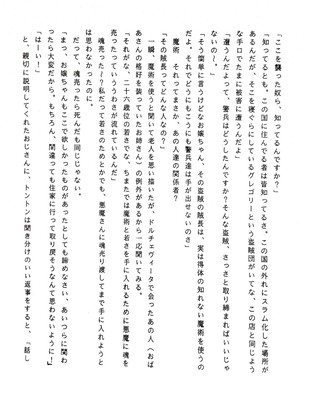 「ここを襲った奴ら、知ってるんですか？」
「知ってるとも。この国に住んでる者は皆知ってるさ。この国の外れにスラム化した場所が
あるんだが、そこを寝ぐらにしているグレゴリーという盗賊団がいてな、この店と同じよう
な手口でたまに被害に遭うんだよ」
「遭うんだよって、警兵はどうしたんですか？そんな盗賊、さっさと取り締まればいいじゃ
ないの〜。」
「そう簡単に言うけどなお嬢ちゃん、その盗賊の賊長は、実は得体の知れない魔術を使うの
だよ。それでどうにもこうにも警兵達は手が出せないのさ」
魔術　それってまさか、あの人達の関係者？
「その賊長ってどんな人なの？」
一瞬、魔術を使うと聞いて老人を思い描いたが、ドルチェヴィータで会ったあの人（おば
あさんの格好を装っていたお姉さん）の例外があるから一応聞いてみる。
「それがな、二十六歳位の若さでな、ちまたでは魔術と若さを手に入れるために悪魔に魂を
売ったっていううわさが流れているんだ」
魂売った〜？私だって若さのためとかでも、悪魔さんに魂売り渡してまで手に入れようと
は思わなかったのに。
だって、魂売ったら死んだも同じじゃない。
「まっ、お嬢ちゃんもここで欲しかったものがあったとしても諦めなさい、あいつらに関わ
ったら大変だから。もちろん、間違っても住家に行って取り戻そうなんて思わないように！」
「はーい！」
と、親切に説明してくれたおじさんに、トントンは聞き分けのいい返事をすると、「話し